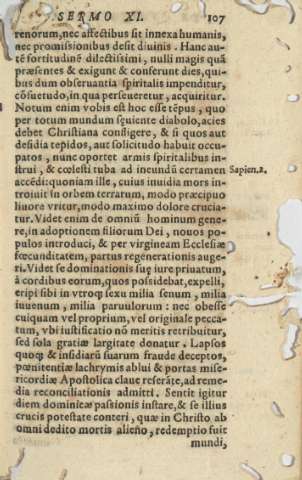 SERMO XI. 107
renorum, nec affectibus sit innexa humanis,
nec promissionibus desit diuinis. Hanc au-
tē fortitudinē dilectissimi, nulli magis quā
præsentes & exigunt & conferunt dies, qui-
bus dum obseruantia spiritalis impenditur,
cōsuetudo, in qua perseueretur, acquiritur.
Notum enim vobis est hoc esse tēpus, quo
per totum mundum sęuiente diabolo, acies
debet Christiana confligere, & si quos aut
desidia tepidos, aut solicitudo habuit occu-
patos, nunc oportet armis spiritalibus in-
strui, & cœlesti tuba ad ineundū certamen Sapien.2.
accēdi: quoniam ille, cuius inuidia mors in-
troiuit in orbem terrarum, modo præcipuo
liuore vritur, modo maximo dolore crucia-
tur. Videt enim de omniū hominum gene-
re, in adoptionem filiorum Dei, nouos po-
pulos introduci, & per virgineam Ecclesiæ
fœcunditatem, partus regenerationis auge-
ri. Videt se dominationis suę iure priuatum,
à cordibus eorum, quos possidebat, expelli,
eripi sibi in vtroq; sexu milia senum, milia
iuuenum, milia paruulorum: nec obesse
cuiquam vel proprium, vel originale pecca-
tum, vbi iustificatio nō meritis retribuitur,
sed sola gratiæ largitate donatur. Lapsos
quoq; & insidiarū suarum fraude deceptos,
pœnitentiæ lachrymis ablui & portas mise-
ricordiæ Apostolica claue reserāte, ad reme-
dia reconciliationis admitti. Sentit igitur
diem dominicæ passionis instare, & se illius
crucis potestate conteri, quæ in Christo ab
omni dedito mortis alieno, redemptio fuit
mundi,